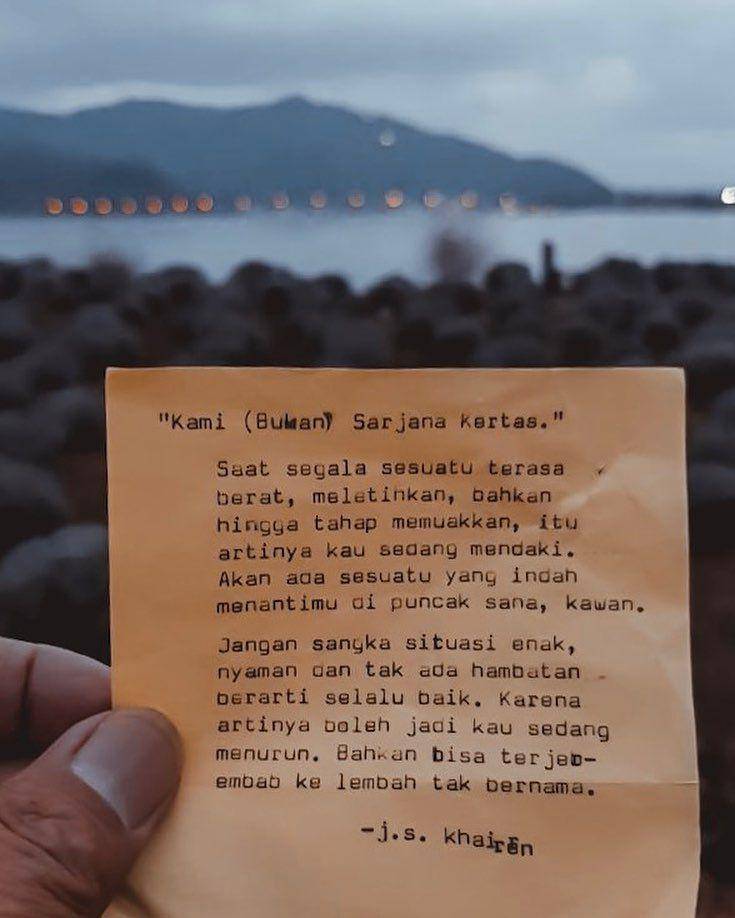 "Kami (Bukan) Sarjana kertas."
Saat segala sesuatu terasa
berat, meletihkan, bahkan
hingga tahap memuakkan, itu
artinya kau sedang mendaki.
Akan ada sesuatu yang indah
menantimu di puncak sana, kawan.
Jangan sangka situasi enak,
nyaman dan tak ada hambatan
berarti selalu baik. Karena
artinya boleh jadi kau sedang
menurun. Bahkan bisa terjeb-
embab ke lembah tak bernama.
-j.s. khairen